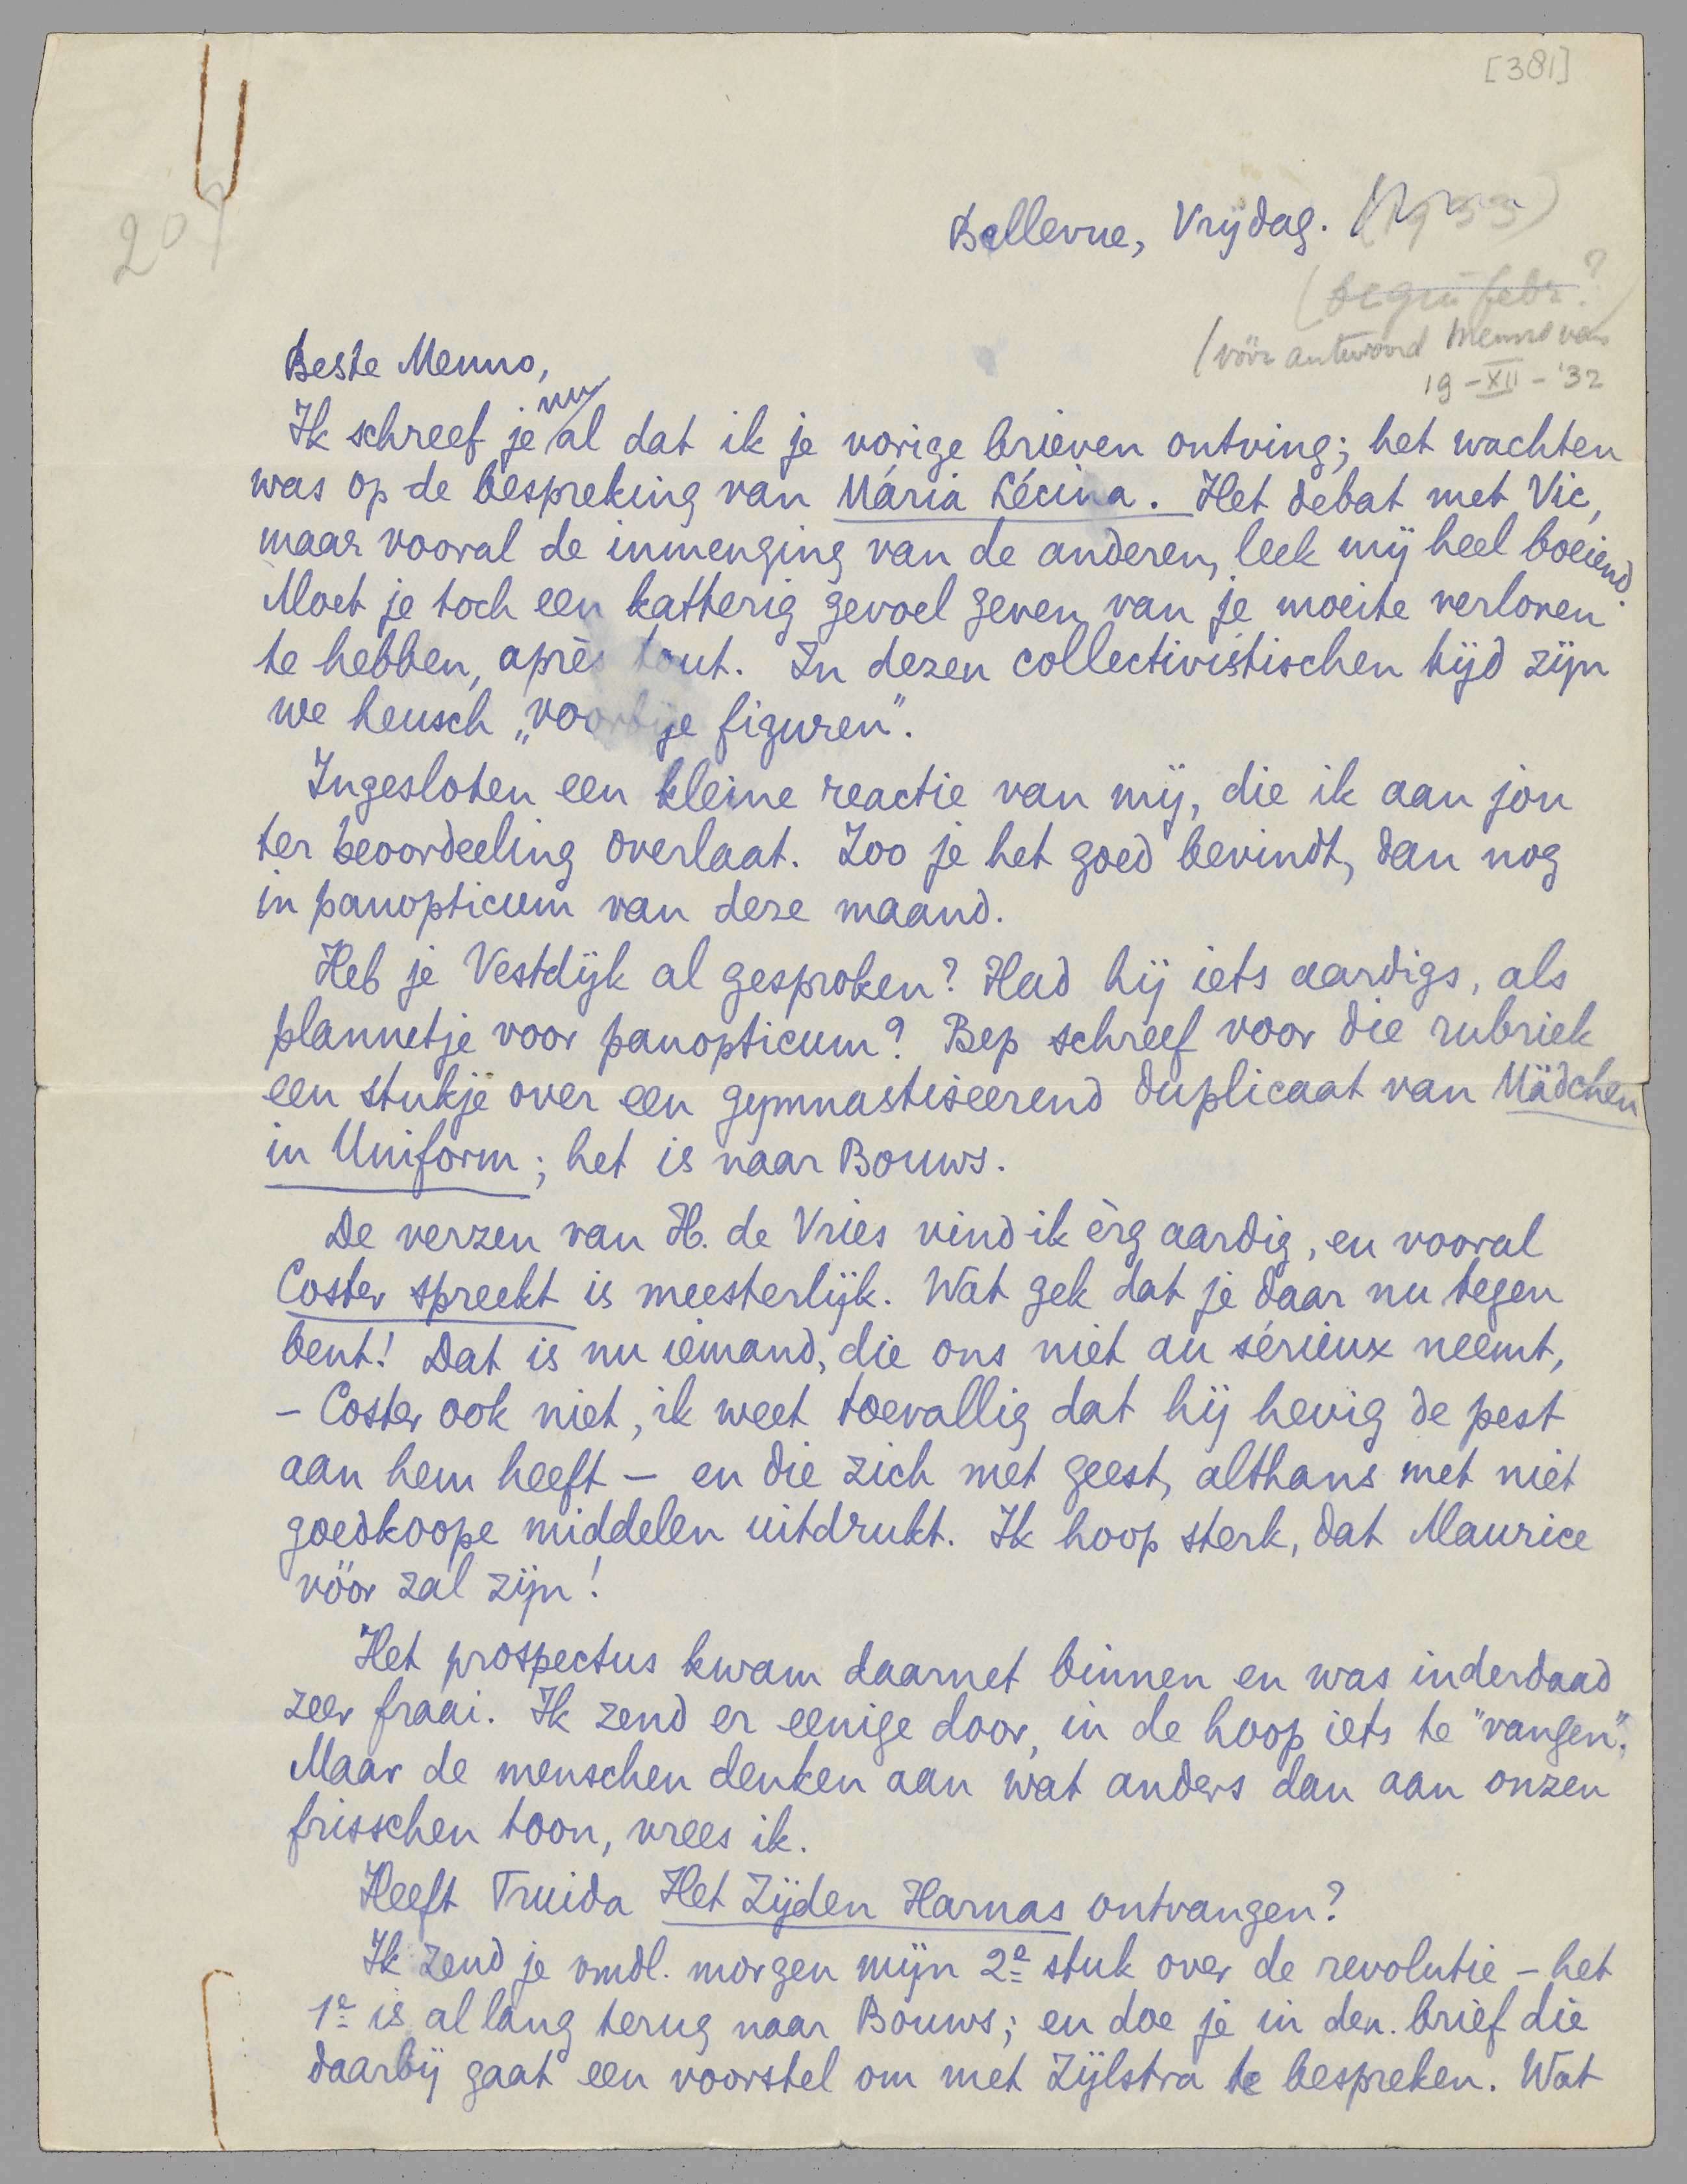 [381]
207
Bellevue, Vrijdag. (1933)
(begin febr.?)
(vóór antwoord Menno van
19-XII-'32
Beste Menno,
nu
Ik schreef je al dat ik je vorige brieven ontving; het wachten
was op de bespreking van Mária Lécina. Het debat met Vic,
maar vooral de inmenging van de anderen, leek mij heel boeiend.
Moet je toch een katterig gevoel geven van je moeite verloren
te hebben, après tout. In dezen collectivistischen tijd zijn
we heusch „voorbije figuren".
Ingesloten een kleine reactie van mij, die ik aan jou
ter beoordeeling overlaat. Zoo je het goed bevindt, dan nog
in panopticum van deze maand.
Heb je Vestdijk al gesproken? Had hij iets aardigs, als
plannetje voor panopticum? Bep schreef voor die rubriek
een stukje over een gymnastiseerend duplicaat van Mädchen
in Uniform; het is naar Bouws.
De verzen van H. de Vries vind ik èrg aardig, en vooral
Coster spreekt is meesterlijk. Wat gek dat je daar nu tegen
bent! Dat is nu iemand, die ons niet au sérieux neemt,
– Coster ook niet, ik weet toevallig dat hij hevig de pest
aan hem heeft – en die zich met geest, althans met niet
goedkoope middelen uitdrukt. Ik hoop sterk, dat Maurice
vóór zal zijn!
Het prospectus kwam daarnet binnen en was inderdaad
zeer fraai. Ik zend er eenige door, in de hoop iets te "vangen".
Maar de menschen denken aan wat anders dan aan onzen
frisschen toon, vrees ik.
Heeft Truida Het Zijden Harnas ontvangen?
Ik zend je vmdl. morgen mijn 2e stuk over de revolutie – het
1e is al lang terug naar Bouws; en doe je in den brief die
daarbij gaat een voorstel om met Zijlstra te bespreken. Wat